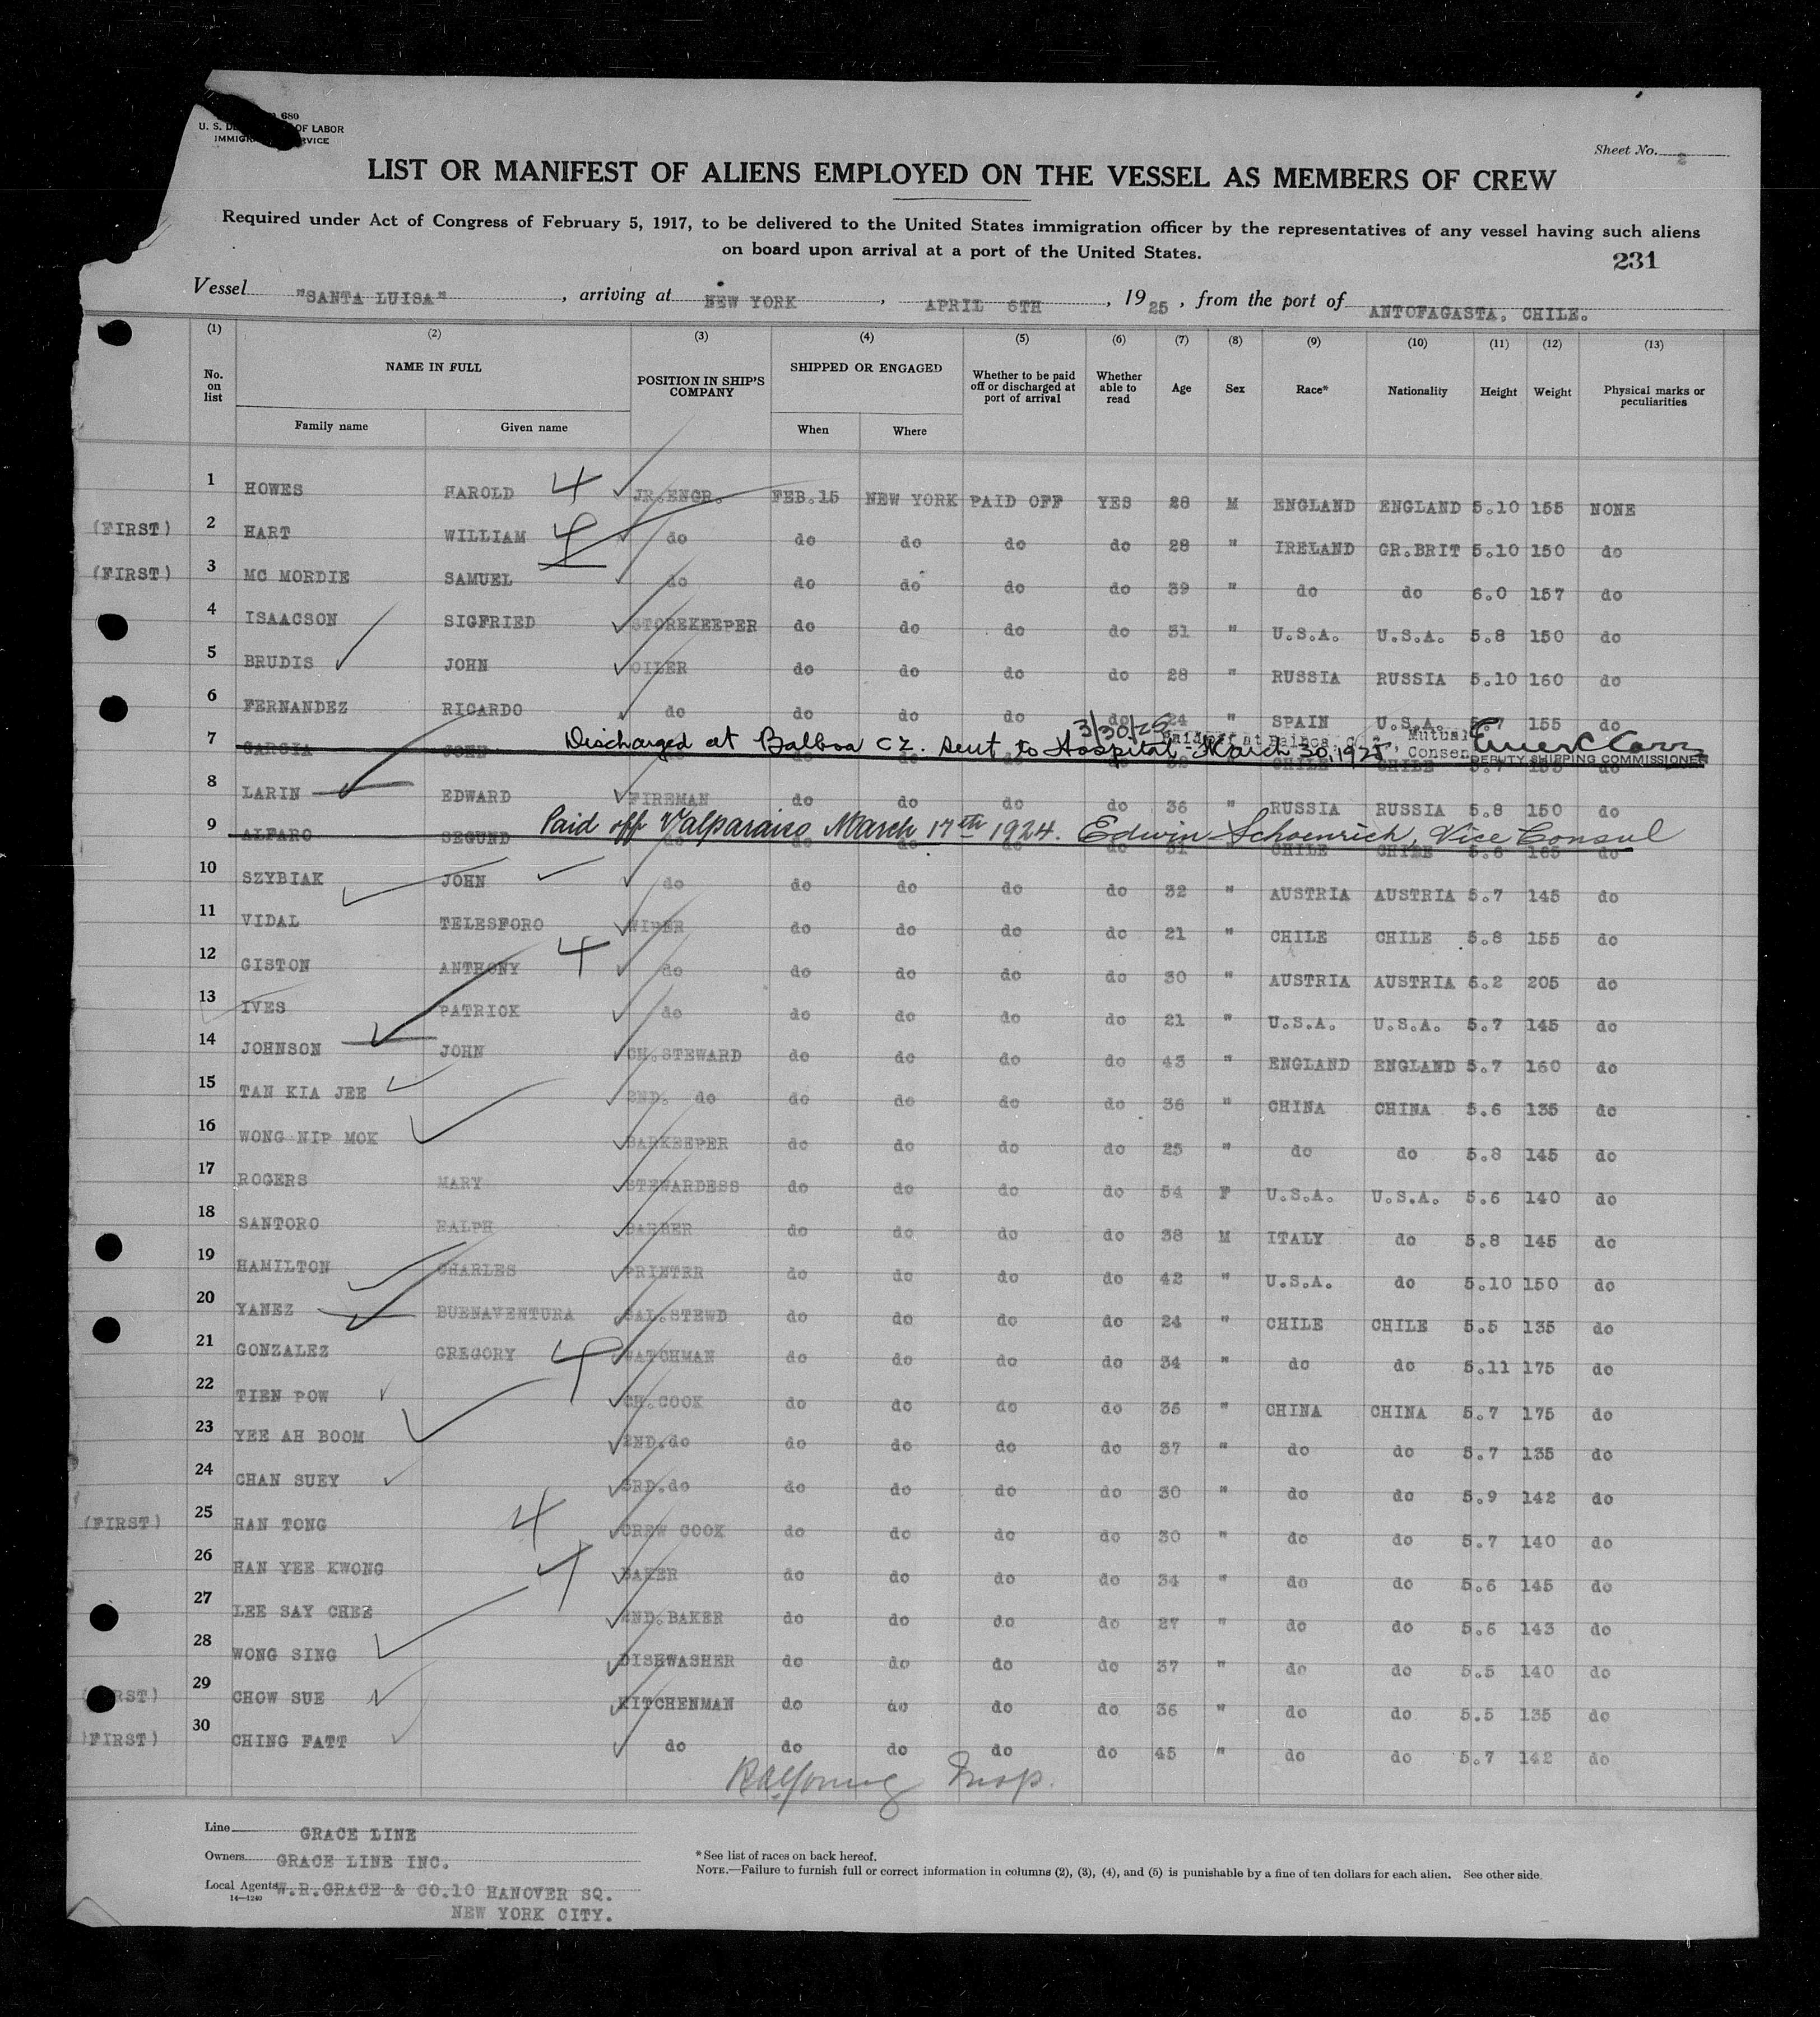 680
U. S. OF LABOR
Sheet No. 2
LIST OR MANIFEST OF ALIENS EMPLOYED ON THE VESSEL AS MEMBERS OF CREW
Required under Act of Congress of February 5, 1917, to be delivered to the United States immigration officer by the representatives of any vessel having such aliens
on board upon arrival at a port of the United States.
231
Vessel "SANTA LUISA", arriving at NEW YORK, APRIL 6TH, 1925, from the port of ANTOFAGASTA. CHILE.
(1) (2) (3) (4) (5) (6) (7) (8) (9) (10) (11) (12) (13)
No. on list NAME IN FULL POSITION IN SHIP'S COMPANY SHIPPED OR ENGAGED Whether to be paid off or discharged at port of arrival Whether able to read Age Sex Race* Nationality Height Weight Physical marks or peculiarities
Family name Given name When Where
1 HOWES HAROLD 4 JR.ENGR. FEB.15 NEW YORK PAID OFF YES 28 M ENGLAND ENGLAND 5.10 155 NONE
(FIRST) 2 HART WILLIAM 4 do do do do do 28 " IRELAND GR.BRIT 5.10 150 do
(FIRST) 3 MC MORDIE SAMUEL do do do do do 39 " do do 6.0 157 do
4 ISAACSON SIGFRIED STOREKEEPER do do do do 31 " U.S.A. U.S.A. 5.8 150 do
5 BRUDIS JOHN OILER do do do do 28 " RUSSIA RUSSIA 5.10 160 do
6 FERNANDEZ RICARDO do do do do do 24 " SPAIN U.S.A. 5.7 155 do
7 GARCIA JOHN Discharged at Balboa CZ. sent to Hospital - March 30, 1925 3/30/25 Mutual Consent DEPUTY SHIPPING COMMISSIONER
CHILE CHILE do
8 LARIN EDWARD FIREMAN do do do do 36 " RUSSIA RUSSIA 5.8 150 do
9 ALFARO SEGUND Paid off Valparaiso March 17th 1924. Edwin Schoenrich, Vice Consul
do do do do 31 CHILE CHILE 5.6 do
10 SZYBIAK JOHN do do do do do 32 " AUSTRIA AUSTRIA 5.7 145 do
11 VIDAL TELESFORO WIPER do do do do 21 " CHILE CHILE 5.8 155 do
12 GISTON ANTHONY 4 do do do do do 30 " AUSTRIA AUSTRIA 5.2 205 do
13 IVES PATRICK do do do do do 21 " U.S.A. U.S.A. 5.7 145 do
14 JOHNSON JOHN CH.STEWARD do do do do 43 " ENGLAND ENGLAND 5.7 160 do
15 TAN KIA JEE 2ND. do do do do do 36 " CHINA CHINA 5.6 135 do
16 WONG NIP MOK BARKEEPER do do do do 25 " do do 5.8 145 do
17 ROGERS MARY STEWARDESS do do do do 54 F U.S.A. U.S.A. 5.6 140 do
18 SANTORO RALPH BARBER do do do do 38 M ITALY do 5.8 145 do
19 HAMILTON CHARLES PRINTER do do do do 42 " U.S.A. do 5.10 150 do
20 YANEZ BUENAVENTURA SAL.STEWD do do do do 24 " CHILE CHILE 5.5 135 do
21 GONZALEZ GREGORY 4 WATCHMAN do do do do 34 " do do 5.11 175 do
22 TIEN POW CH.COOK do do do do 35 " CHINA CHINA 5.7 175 do
23 YEE AH BOOM 2ND.do do do do do 37 " do do 5.7 135 do
24 CHAN SUEY 3RD.do do do do do 30 " do do 5.9 142 do
(FIRST) 25 HAN TONG 4 CREW COOK do do do do 30 " do do 5.7 140 do
26 HAN YEE KWONG BAKER do do do do 34 " do do 5.6 145 do
27 LEE SAY CHEE 2ND.BAKER do do do do 27 " do do 5.6 143 do
28 WONG SING DISHWASHER do do do do 37 " do do 5.5 140 do
29 CHOW SUE KITCHENMAN do do do do 36 " do do 5.5 135 do
)FIRST) 30 CHING FATT do do do do do 45 " do do 5.7 142 do
Insp.
Line GRACE LINE
Owners GRACE LINE INC.
Local Agents W.R.GRACE & CO.10 HANOVER SQ.
14—1240 NEW YORK CITY.
*See list of races on back hereof.
NOTE.—Failure to furnish full or correct information in columns (2), (3), (4), and (5) is punishable by a fine of ten dollars for each alien. See other side.